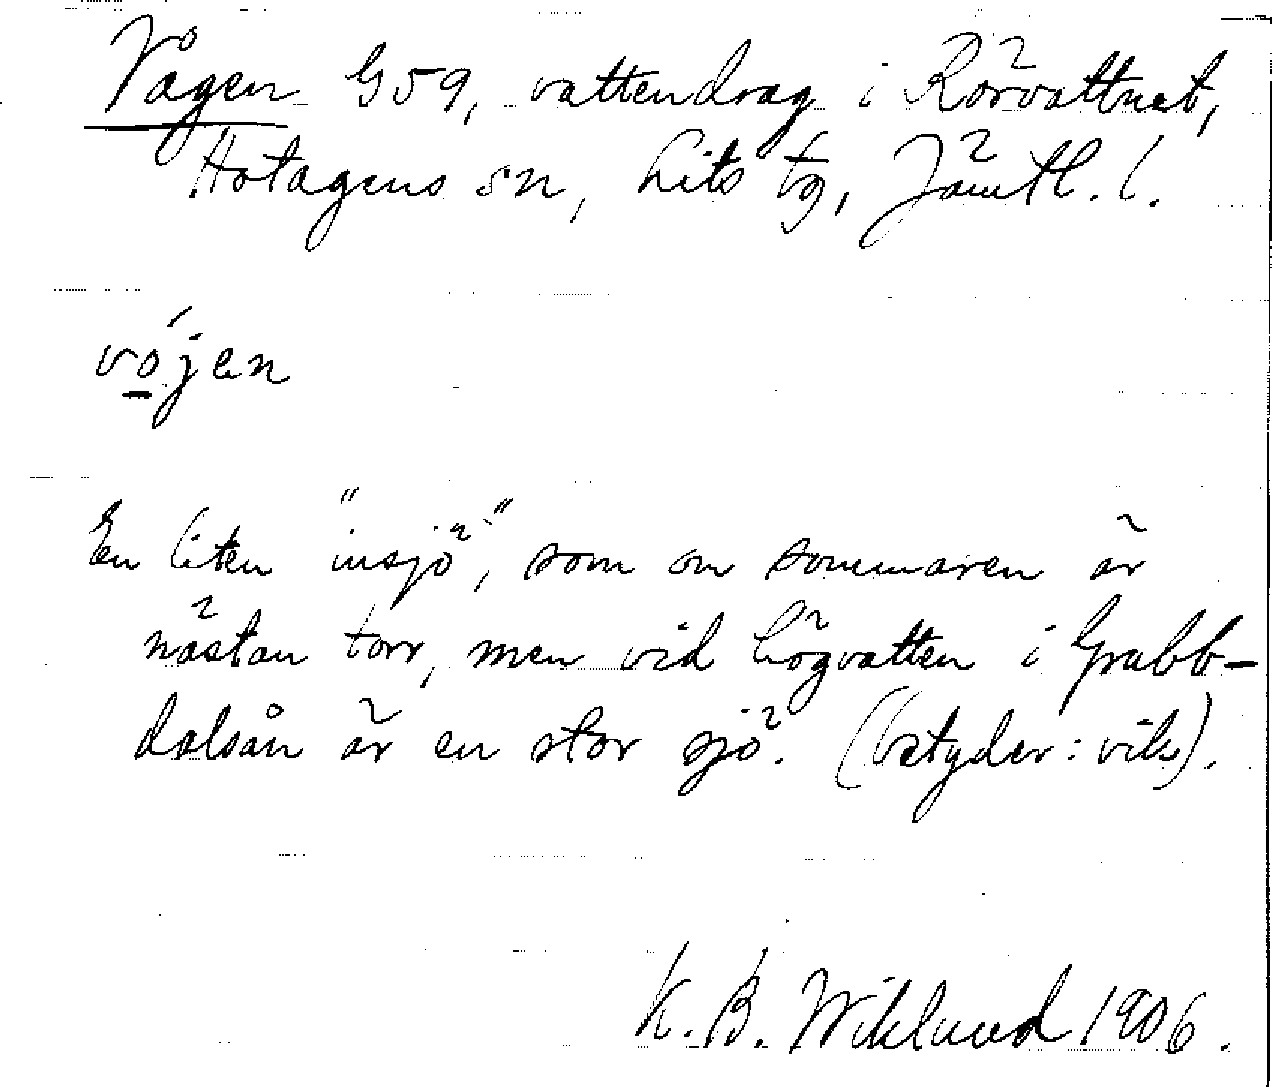 Vågen G59, vattendrag i Rörvattnet,
Hotagens sn, Lits tg, Jämtl. l.
vójen
En liten "insjö", som om sommaren är
nästan torr, men vid högvatten i Grabb-
dalsån är en stor sjö. (betyder: vik).
K. B. Wiklund 1906.